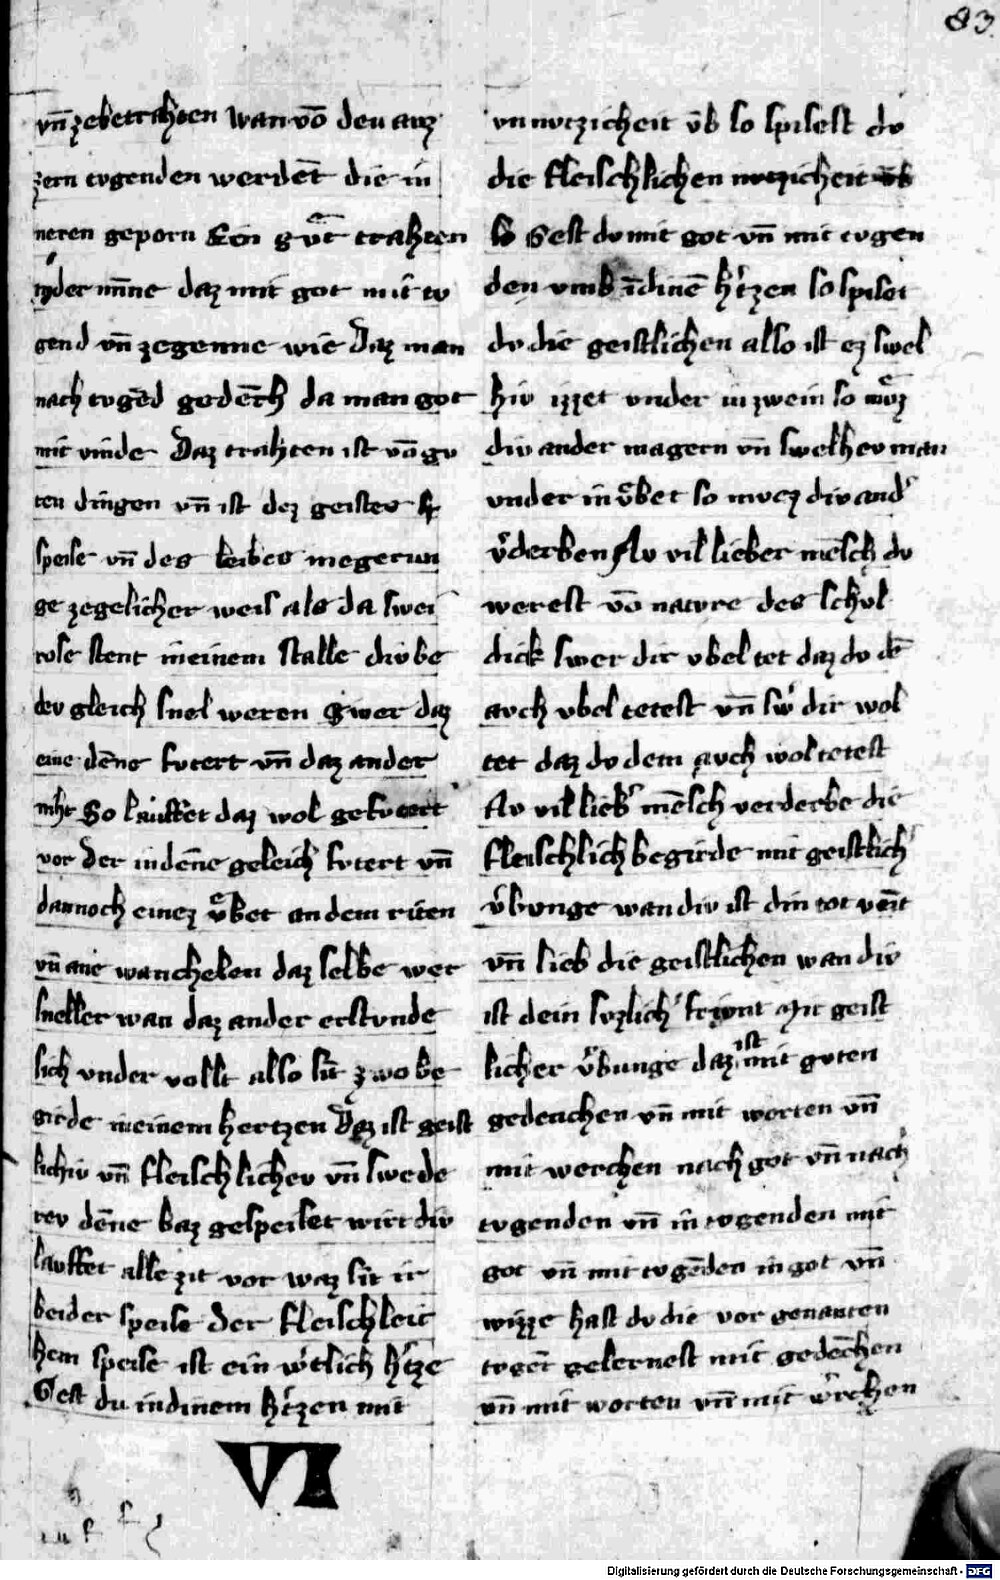 83
vn̄ zebetrahten wan vō den auz
zern tvgenden werdēt die in
neren geporn Ein gůt trahten
der minne daz mit got mit tv
gend vn̄ zegenne wie Daz man
nach tvgēd gedēch da man got
mit vinde Daz trahten ist vō gv
ten dingen vn̄ ist dez geistes
speise vn̄ des leibes megerun
ge zegelicher weis als da swei
rose stent in einem stalle div be
dev gleich snel weren Swer daz
eine dēne fvtert vn̄ daz ander
niht So lauffet daz wol gefvtert
vor Der in dēne geleich fvtert vn̄
dannoch einez v̊bet an dem riten
vn̄ ane wanchelen daz selbe wer
sneller wan daz ander erstvnde
lich vnder vollt also sit zwo be
girde in einem hertzen Daz ist geist
lichiv vn̄ fleischlichev vn̄ swede
rev dēne baz gespeiset wirt div
lauffet alle zit vor waz sit ir
beider speise Der fleischleit
hem speise ist ein w̓tlich h̓tze
Gest du in dinem h̓tzen mit
VI
vn nvtzicheit v̄b so spisest dv
die fleischlichen nvtzicheit v̄b
so Gest dv mit got vn̄ mit tvgen
den vmb in dinē h̓tzen so spiset
dv die geistlichen also ist ez swel
hiv izzet vnder in zwein so mv̊z
div ander magern vn̄ swelhev man
vnder in v̊bet so mvez div and̓
v̓derben Nv vil lieber mēsch dv
werest vō natvre des schvl
dick swer dir vbel tet daz dv dē
avch vbel tetest vn̄ sw̓ dir wol
tet daz dv dem avch wol tetest
Nv vil lieb̓ mēsch verderbe die
fleischlich begirde mit geistlich̓
v̊bvnge wan div ist din tot veīt
vn̄ lieb die geistlichen wan div
ist dein svzlich̓ frivnt Mit geist
licher v̊bunge daz ist mit gvten
gedenchen vn̄ mit worten vn̄
mit werchen nach got vn̄ nach
tvgenden vn̄ in tvgenden mit
got vn̄ mit tvgēden in got vn̄
wizze hast dv die vor genanten
tvgēt gelernest mit gedēchen
vn̄ mit worten vn̄ mit w̓rchen
Digitalisierung gefördert durch die Deutsche Forschungsgemeinschaft - DFG